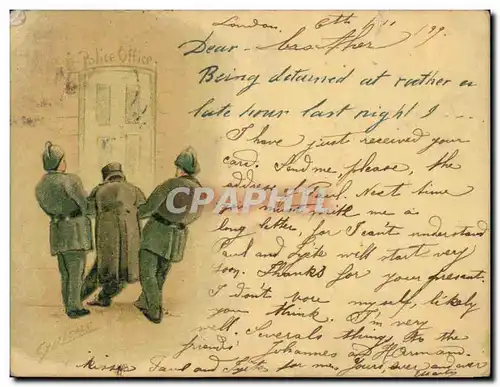 London. 6th /11 199.
Police Office.
Dear brother
Being detained at rather a
late hour last night I ...
I have just received your
card. Send me, please, the
address of Paul. Next time
you must write me a
long letter, for I can't understand
Paul and Lyte will start very
soon. Thanks for your present.
I don't bore myself, likely
you think. I'm very
well. Severals things to the
friends Johannes and Hermann
Kisses Paul and Lyte for me. Yours, ever and ever
CPARAMA